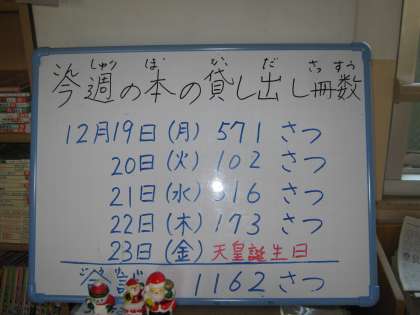 こん しゅう ほん か だ さっ すう
今週の本の貸し出し冊数
12月19日(月) 571 さつ
20日(火) 102 さつ
21日(水) 316 さつ
22日(木) 173 さつ
23日(金) 天皇誕生日
合計 1162 さつ